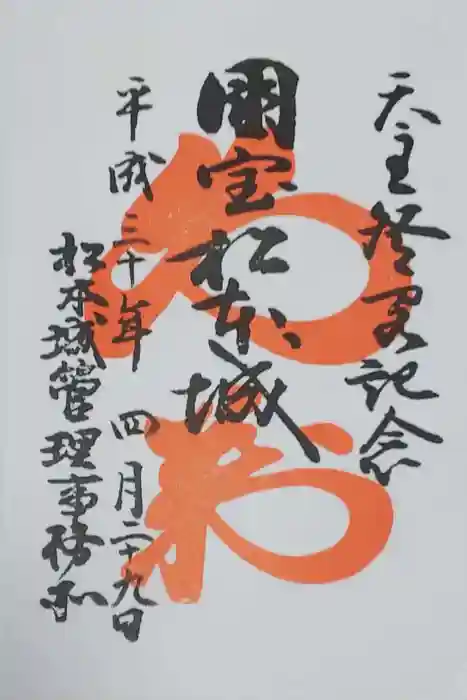 天主登閣記念
国宝松本城
平成三十年 四月二十九日
松本城管理事務所